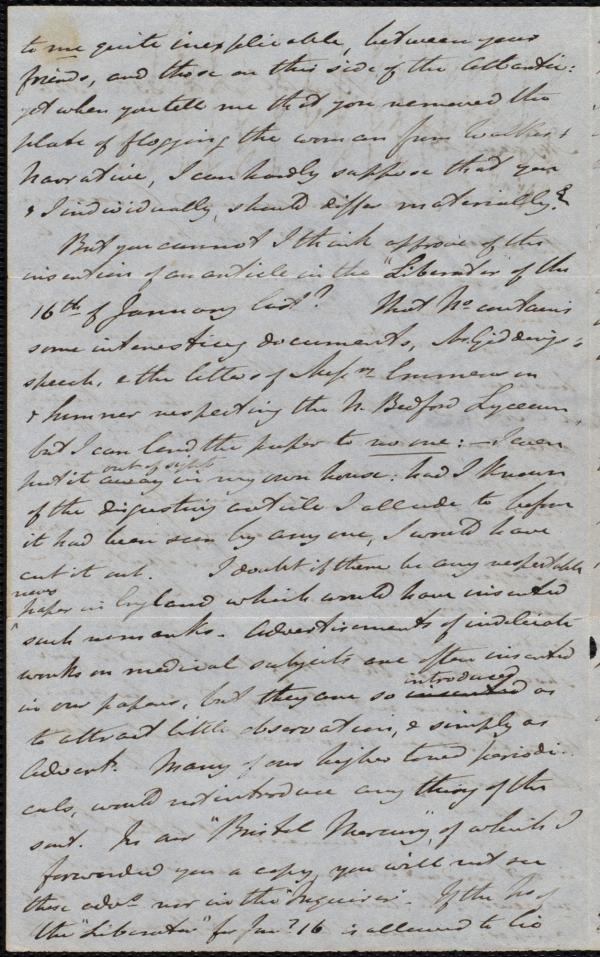 to me quite inexplicable, between your
friends, and those on this side of the Atlantic:
yet when you tell me that you removed the
plate of flogging the woman from Walker's
Narrative, I can hardly suppose that you
& I individually, should differ materially.
But you cannot I think approve of the
insertion of an article in the "Liberator" of the
16th of January last? That No contains
some interesting documents, Mr Giddings's
speech, & the letters of Messrs Emerson
& Sumner respecting the N. Bedford Lyceum,
but I can lend the paper to no one: – I even
put it away out of sight in my own house: had I known
of the disgusting article I allude to before
it had been seen by any one, I would have
cut it out. I doubt if there be any respectable
news
paper in England which would have inserted
such remarks. Advertisements of indelicate
works on medical subjects are often inserted
in our papers, but they are so introduced inserted as
to attract little observation, & simply as
Advert. Many of our higher toned periodi-
cals, would not introduce any thing of the
sort. In our "Bristol Mercury", of which I
forwarded you a copy, you will not see
these advts nor in the "Inquirer". If the No of
the "Liberator" for Jany 16 is allowed to lie